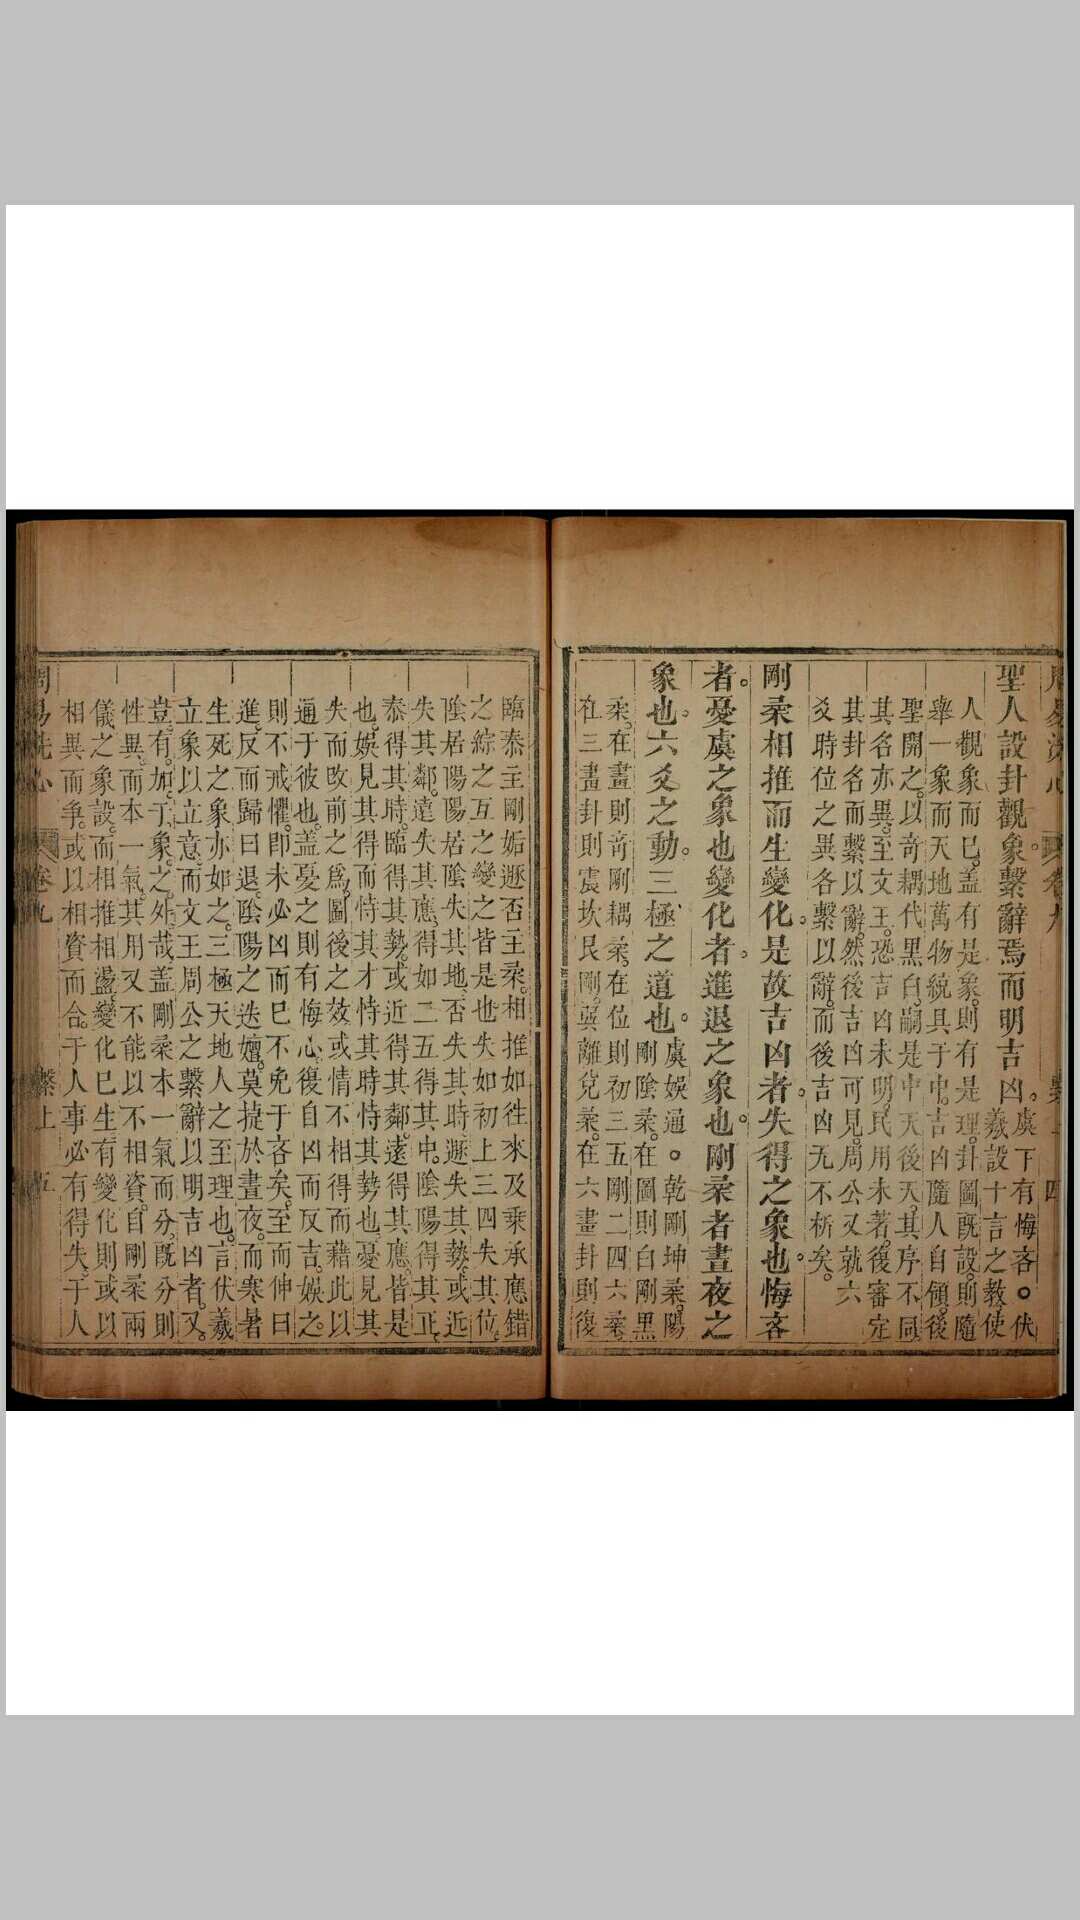 周易洗心 卷九 繫上 四
聖人設卦觀象繫辭焉而明吉凶。虞下有悔吝。伏
羲設十言之教使
人觀象而已蓋有是象則有是理卦圖旣設則隨
舉一象而天地萬物統具于中吉凶隨人自領後
聖開之以竒耦代黑白嗣是中天後天其序不同
其名亦異至文王恐吉凶未明民用未著復審定
其卦名而繫以辭然後吉凶可見周公又就六
爻時位之異各繫以辭而後吉凶无不析矣
剛柔相推而生變化是故吉凶者失得之象也悔吝
者憂虞之象也變化者進退之象也剛柔者晝夜之
象也六爻之動三極之道也虞娛通。乾剛坤柔陽
剛陰柔在圖則白剛黑
柔在畫則竒剛耦柔在位則初三五剛二四六柔
在三畫卦則震坎艮剛巽離兌柔在六畫卦則復
臨泰主剛姤遯否主柔相推如往來及乘承應錯
之綜之互之變之皆是也失如初上三四失其位
陰居陽陽居陰失其地否失其時遯失其勢或近
失其鄰遠失其應得如二五得其中陰陽得其正
泰得其時臨得其勢或近得其鄰遠得其應皆是
也娛見其得而恃其才恃其時恃其勢也憂見其
失而改前之爲圖後之效或情不相得而藉此以
通于彼也蓋憂之則有悔心復自凶而反吉娛之
則不戒懼卽未必凶而已不免于吝矣至而伸曰
進反而歸曰退陰陽之迭嬗莫捷於晝夜而寒暑
生死之象亦如之三極天地人之至理也言伏羲
立象以立意而文王周公之繫辭以明吉凶者又
豈有加于象之外哉蓋剛柔本一氣而分旣分則
性異而本一氣其用又不能以不相資自剛柔兩
儀之象設而相推相盪變化已生有變化則或以
相異而爭或以相資而合于人事必有得失于人
周易洗心 卷九 繫上 五